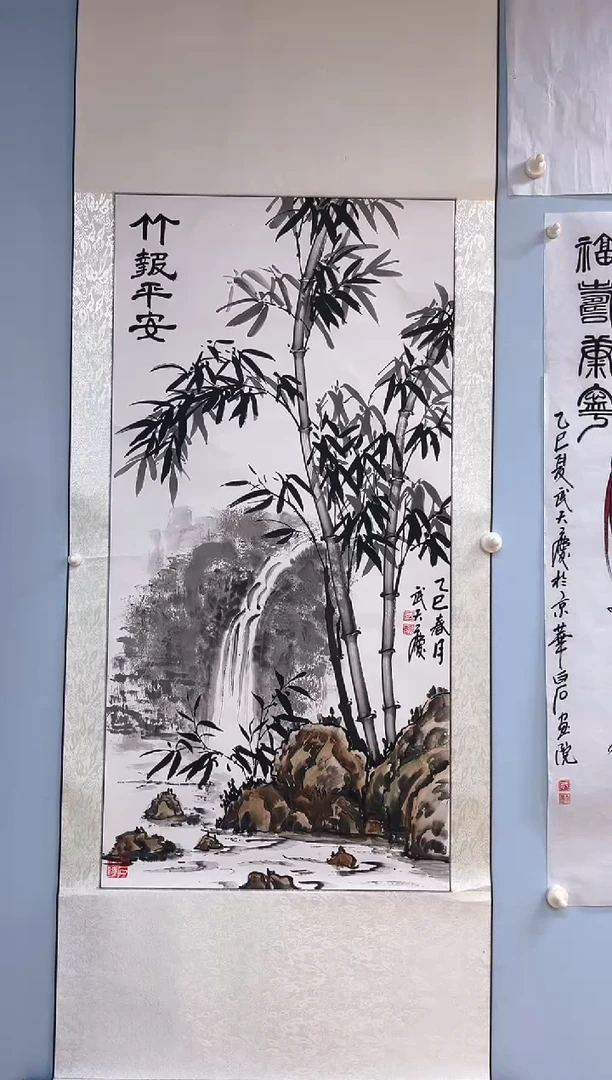 竹報平安
乙巳春月
武天慶
福壽康寧
乙巳夏武天慶於京華白石画院